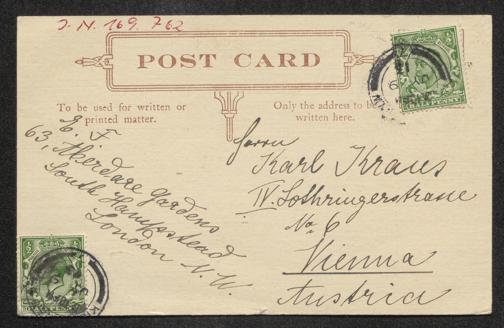 J. N. 169.762
POST CARD
To be used for written or
printed matter.
Only the address to be
written here.
E. F.
63, Aberdare Gardens
South Hampstead
London N. W.
Herrn
Karl Kraus
IV. Lothringerstrasse
No 6
Vienna
Austria